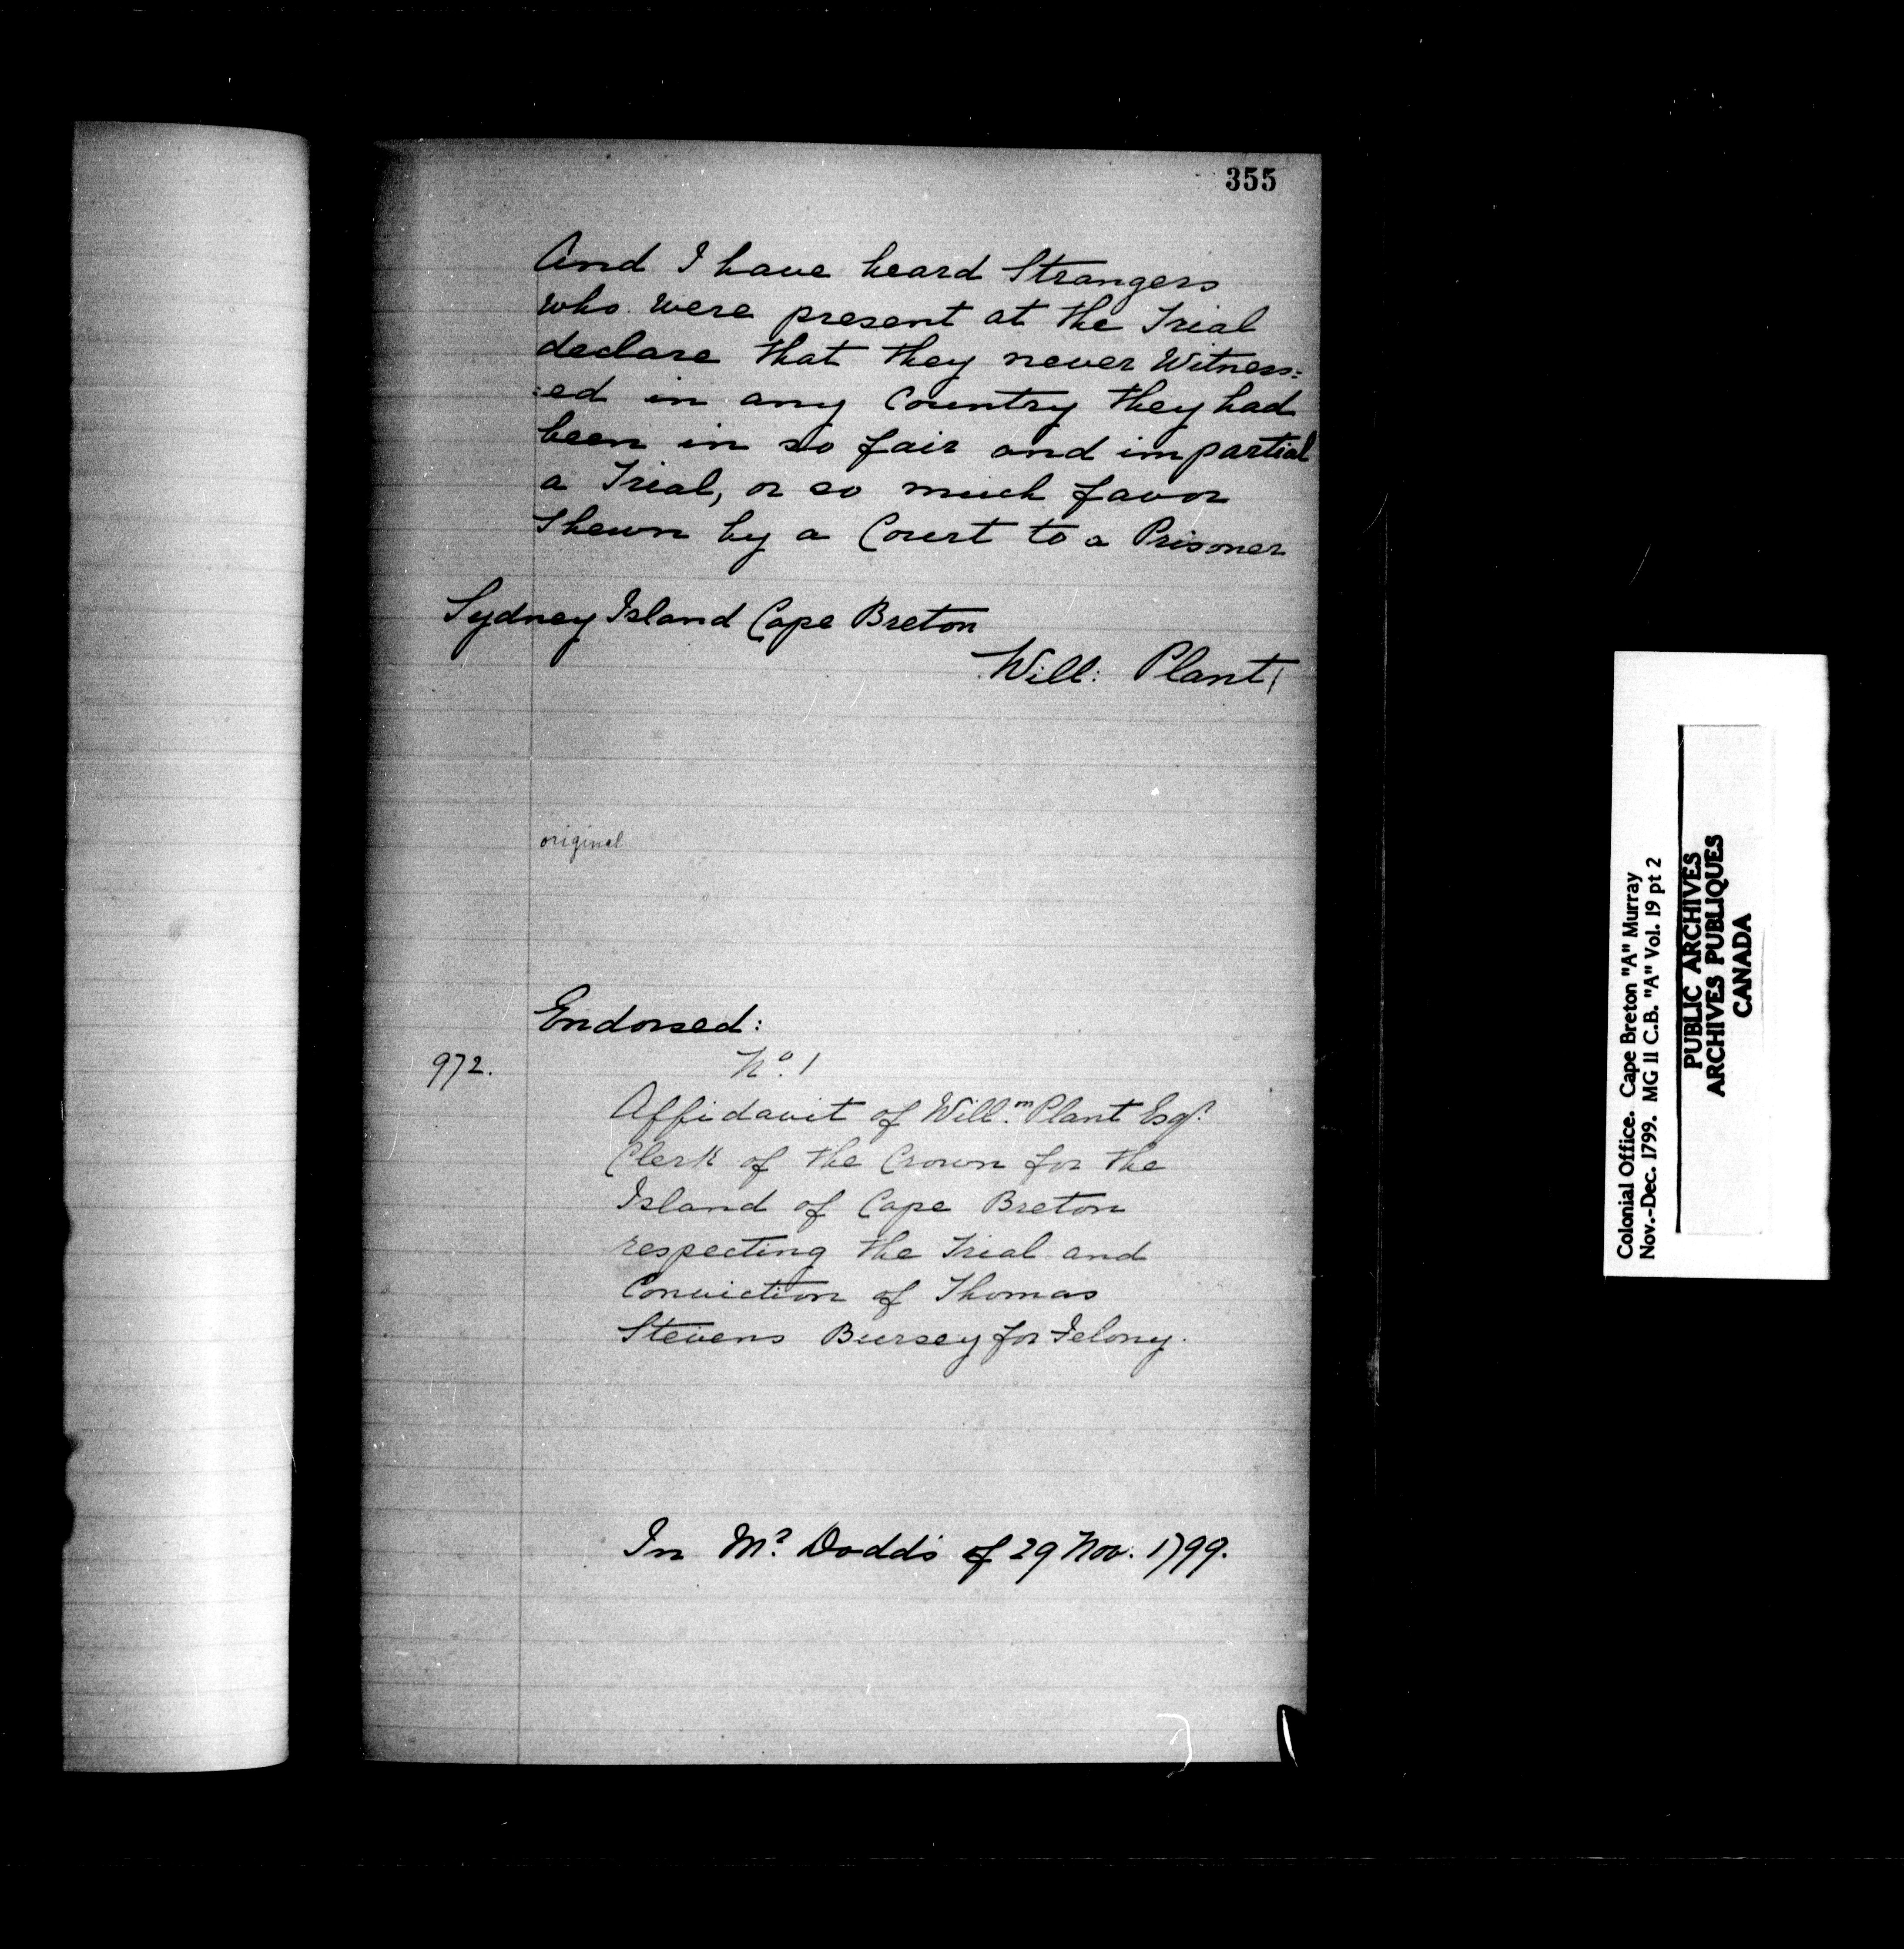 355
And I have heard Strangers
who were present at the Trial
declare that they never Witness:
:ed in any Country they had
been in so fair and impartial
a Trial, or so much favor
Shewn by a Court to a Prisoner
Sydney Island Cape Breton
Will: Plant
original
Endorsed:
972.
No. 1
Affidavit of Will.m Plant Esqr.
Clerk of the Crown for the
Island of Cape Breton
respecting the Trial and
Conviction of Thomas
Stevens Bursey for Felony.
In Mr. Dodd's of 29 Nov. 1799.
Colonial Office. Cape Breton "A" Murray
Nov.-Dec. 1799. MG 11 C.B. "A" Vol. 19 pt 2
PUBLIC ARCHIVES
ARCHIVES PUBLIQUES
CANADA